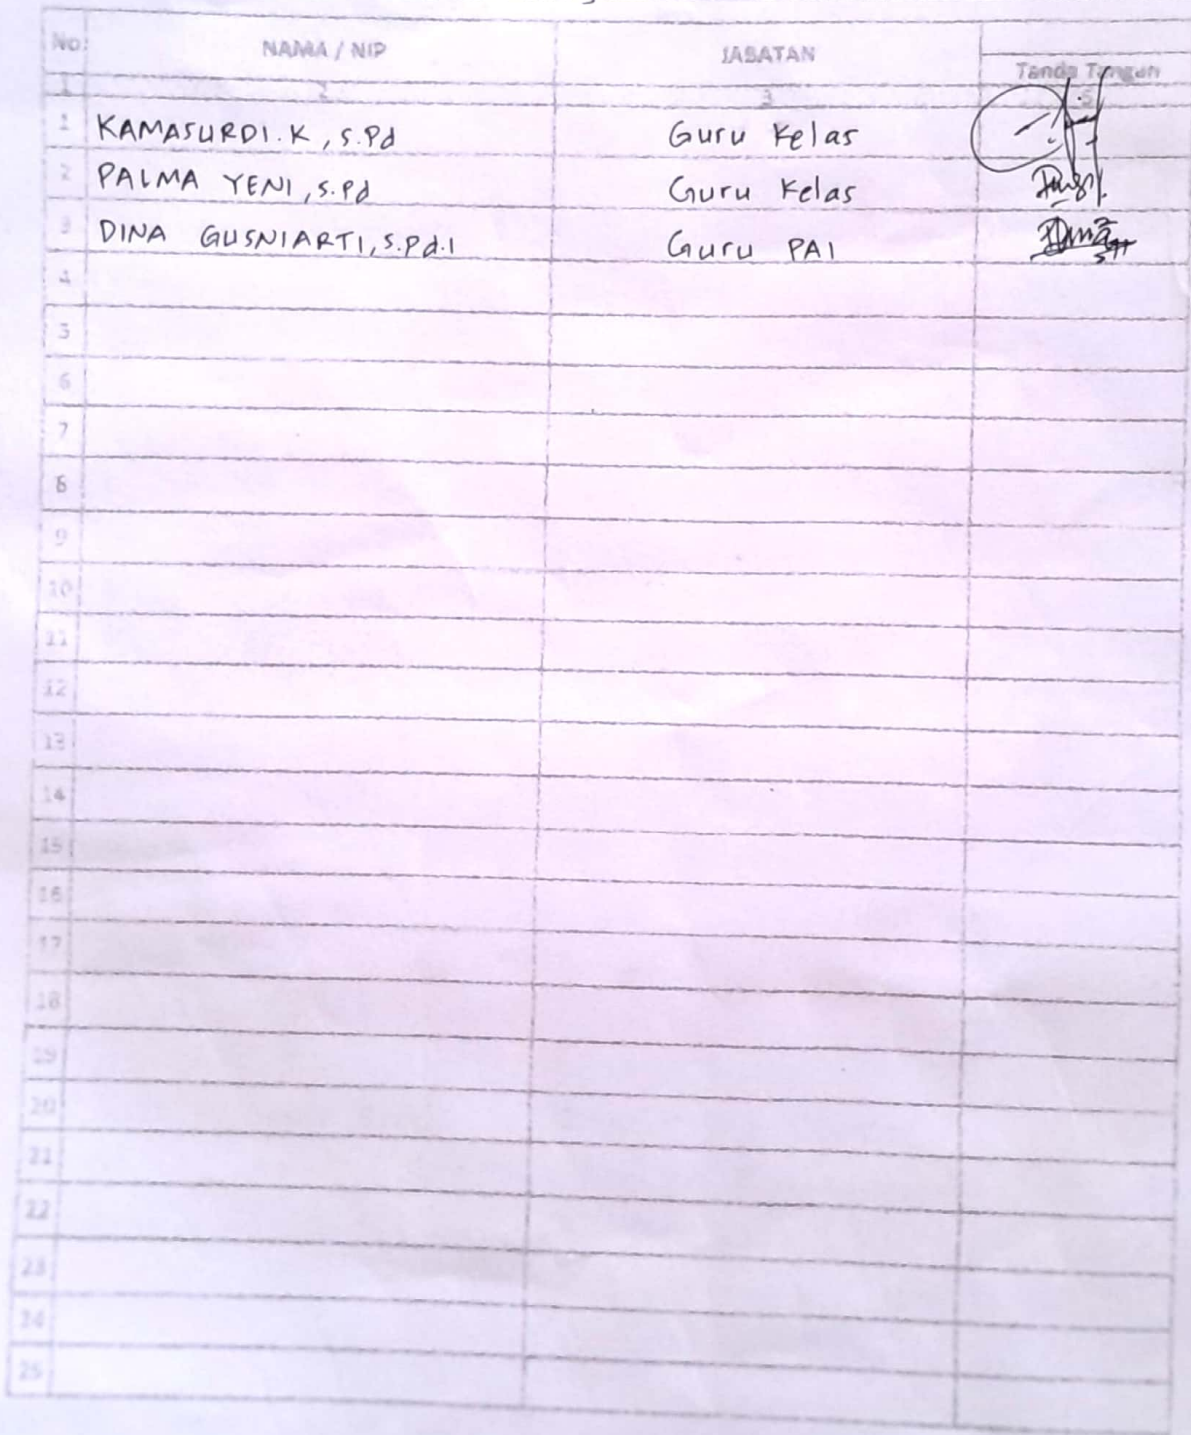 No. NAMA / NIP JABATAN
Tanda Tangan
1 2 3 5
1 KAMASURDI.K, S.Pd Guru Kelas
2 PALMA YENI, S.Pd Guru Kelas
3 DINA GUSNIARTI, S.Pd.I Guru PAI
4
5
6
7
8
9
10
11
12
13
14
15
16
17
18
19
20
21
22
23
24
25